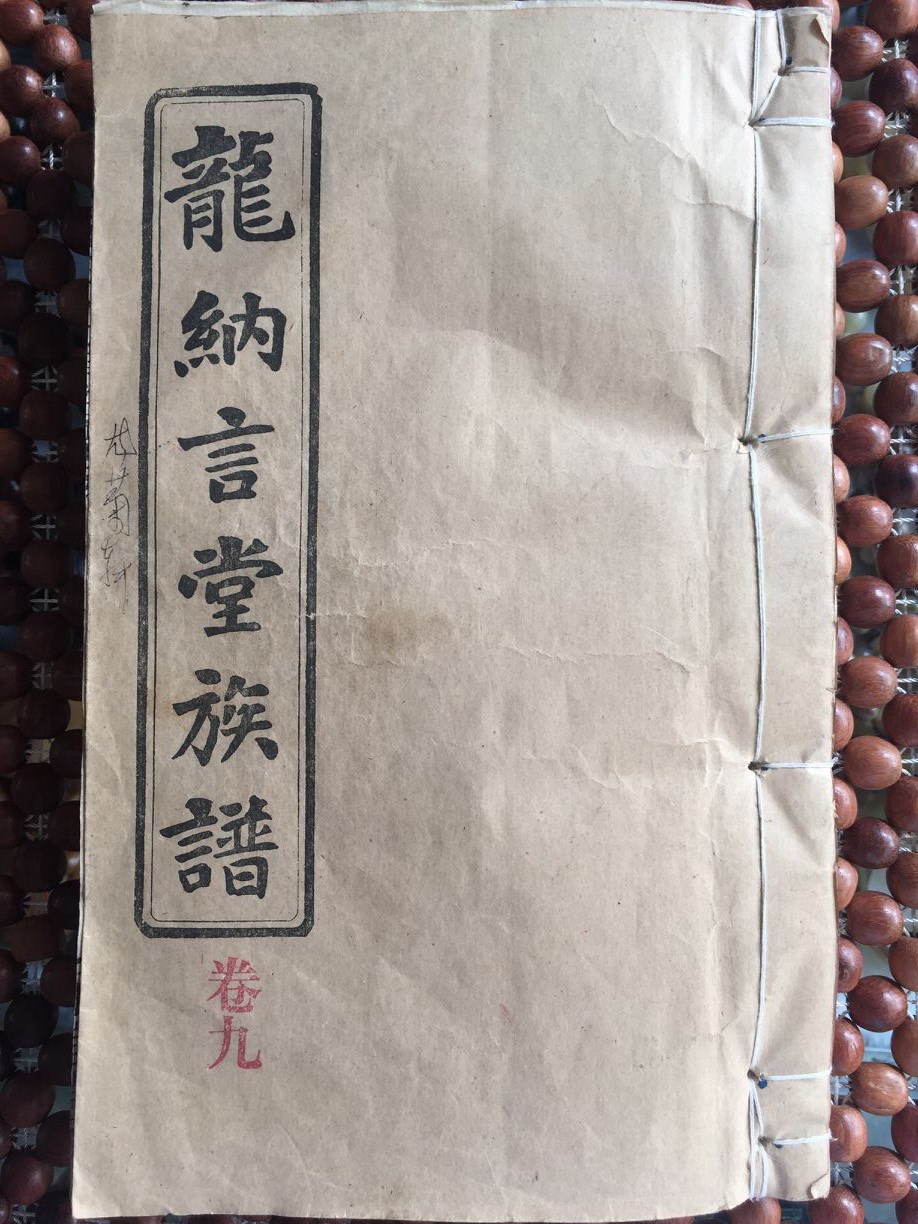 龍納言堂族譜
卷九